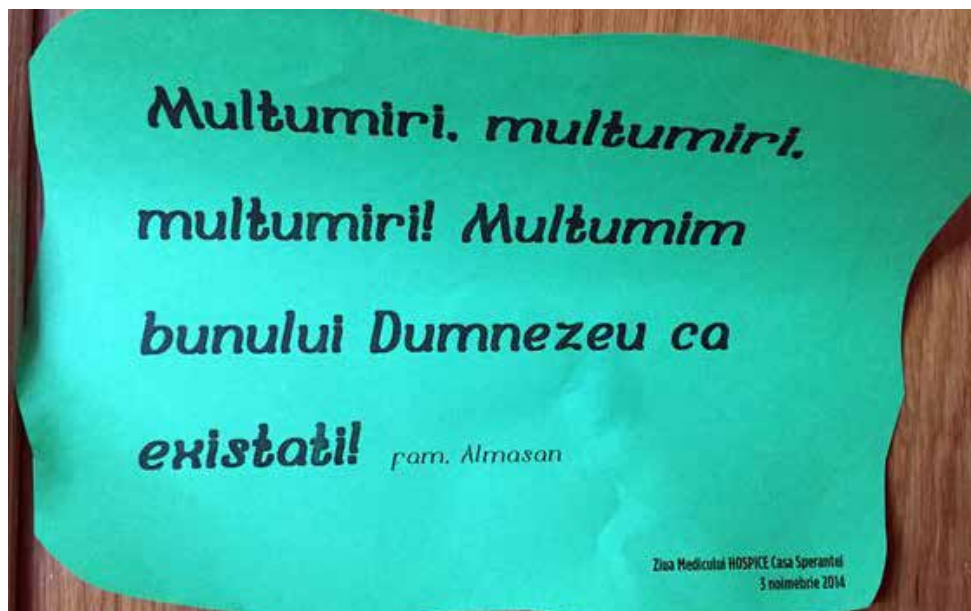 Multumiri, multumiri,
multumiri! Multumim
bunului Dumnezeu ca
existati! fam. Almasan
Ziua Medicului HOSPICE Casa Sperantei
3 noimebrie 2014